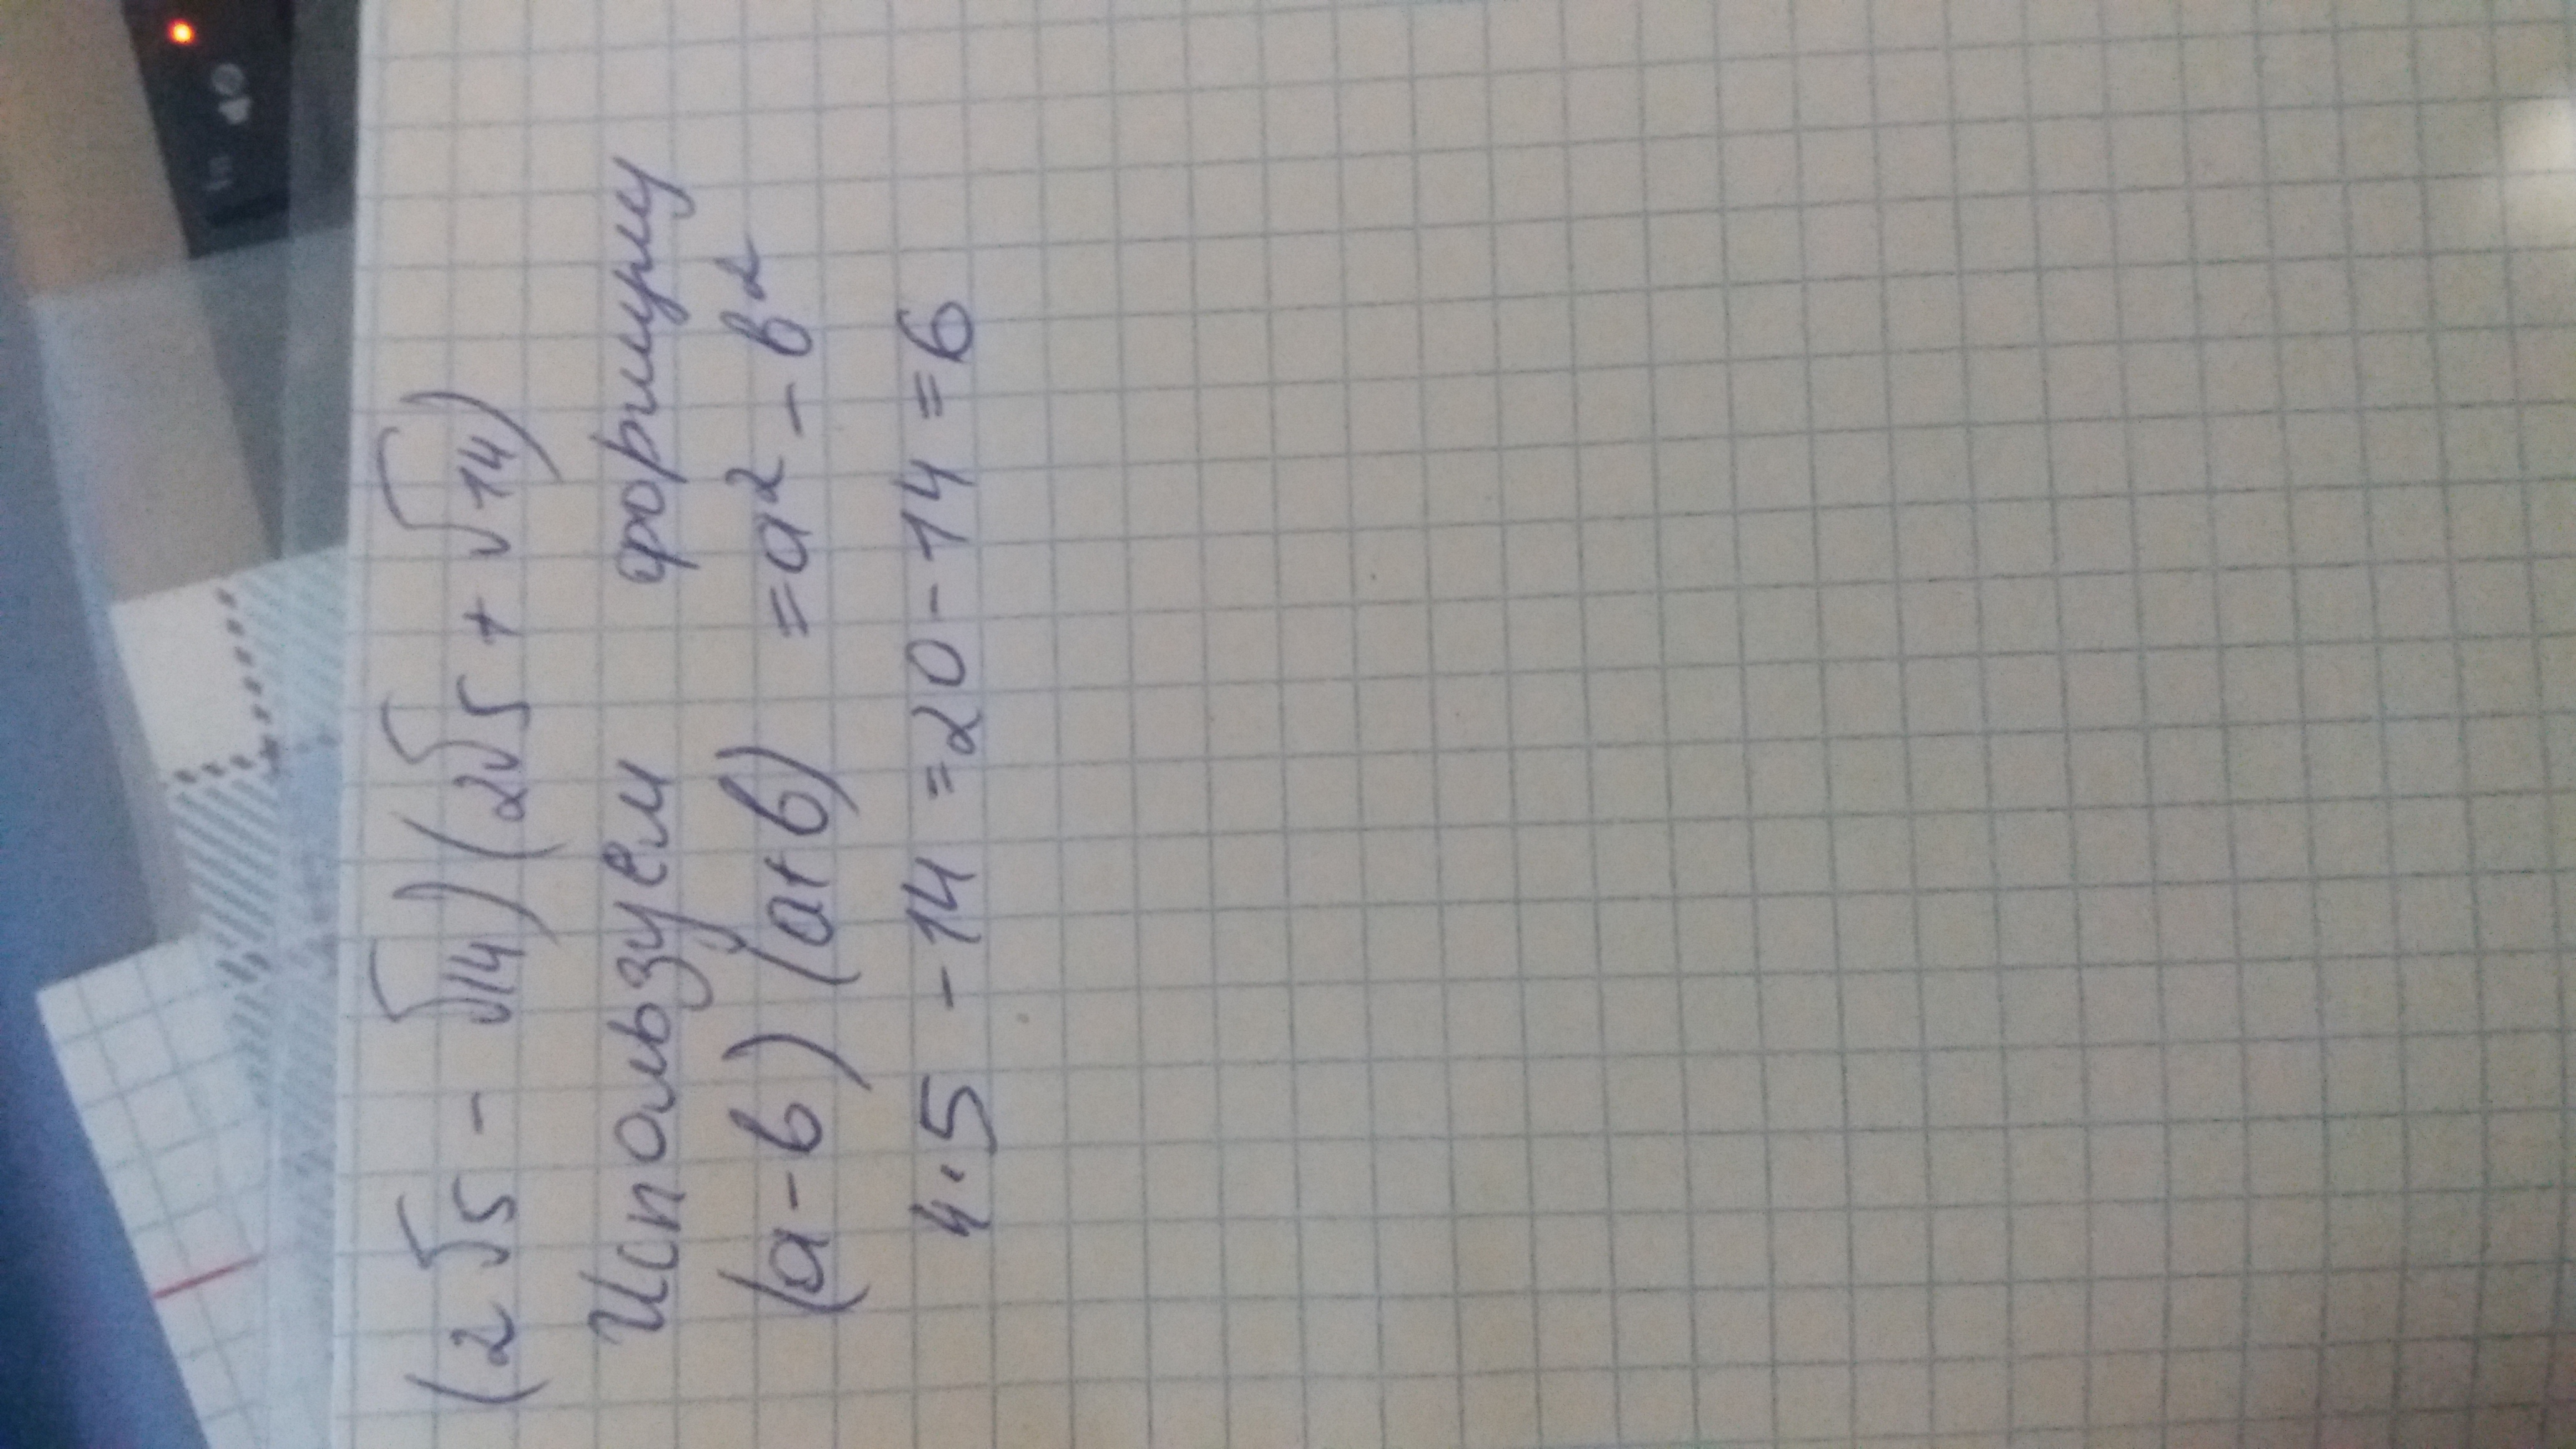 (2√5 - √14) (2√5 + √14)
Используем формулу
(a-b) (a+b) = a² - b²
4·5 - 14 = 20 - 14 = 6